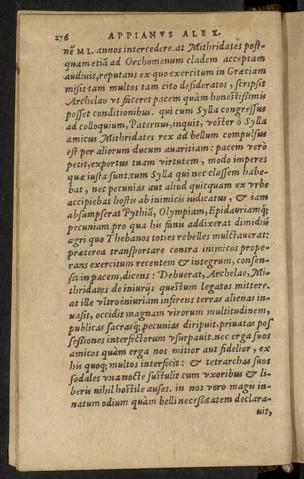 276 APPIANVS ALEX.
nū ML. annos intercedere. at Mithridates post-
quam etiā ad Orchomenum cladem acceptam
audiuit, reputans ex quo exercitum in Græciam
misit tam multos tam cito desideratos, scripsit
Archelao vt faceret pacem quàm honestissimis
posset conditionibus. qui cum Sylla congressus
ad colloquium, Paternus, inquit, vester ô Sylla
amicus Mithridates rex ad bellum compulsus
est per aliorum ducum auaritiam: pacem verò
petit, expertus tuam virtutem, modo imperes
quæ iusta sunt. tum Sylla qui nec classem habe-
bat, nec pecunias aut aliud quicquam ex vrbe
accipiebat hostis ab inimicis iudicatus, & iam
absumpserat Pythiā, Olympiam, Epidauriamq;
pecuniam pro qua his fanis addixerat dimidiū
agri quo Thebanos toties rebelles mulctauerat:
præterea transportare contra inimicos prope-
rans exercitum recentem & integrum, consen-
sit in pacem, dicens: Debuerat, Archelae, Mi-
thridates de iniurijs questum legatos mittere.
at ille vltrò iniuriam inferens terras alienas in-
uasit, occidit magnam virorum multitudinem,
publicas sacrasq; pecunias diripuit, priuatas pos
sessiones interfectorum vsurpauit. nec erga suos
amicos quàm erga nos mitior aut fidelior, ex
his quoq; multos interfecit: & tetrarchas suos
sodales vna nocte sustulit cum vxoribus & li-
beris nihil hostile ausos. in nos vero magis in-
natum odium quàm belli necessitatem declara-
uit,